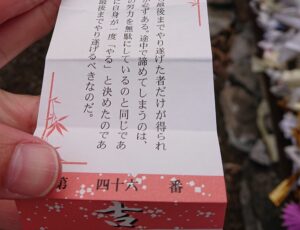 最後までやり遂げた者だけが得られ
必ずある。途中で諦めてしまうのは、
の努力を無駄にしているのと同じであ
に自身が一度「やる」と決めたのであ
最後までやり遂げるべきなのだ。
第 四十六 番
吉